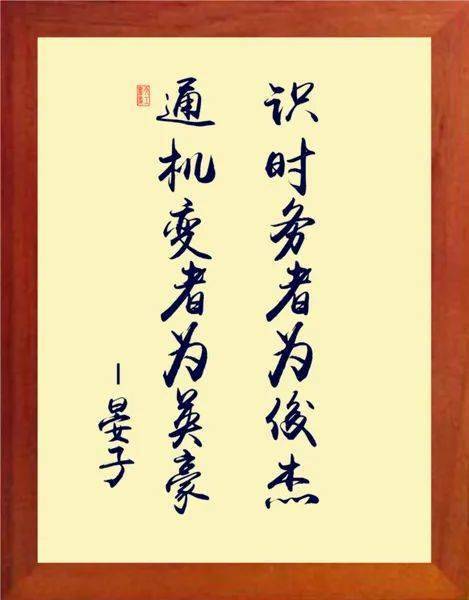 识时务者为俊杰
通机变者为英豪
—晏子